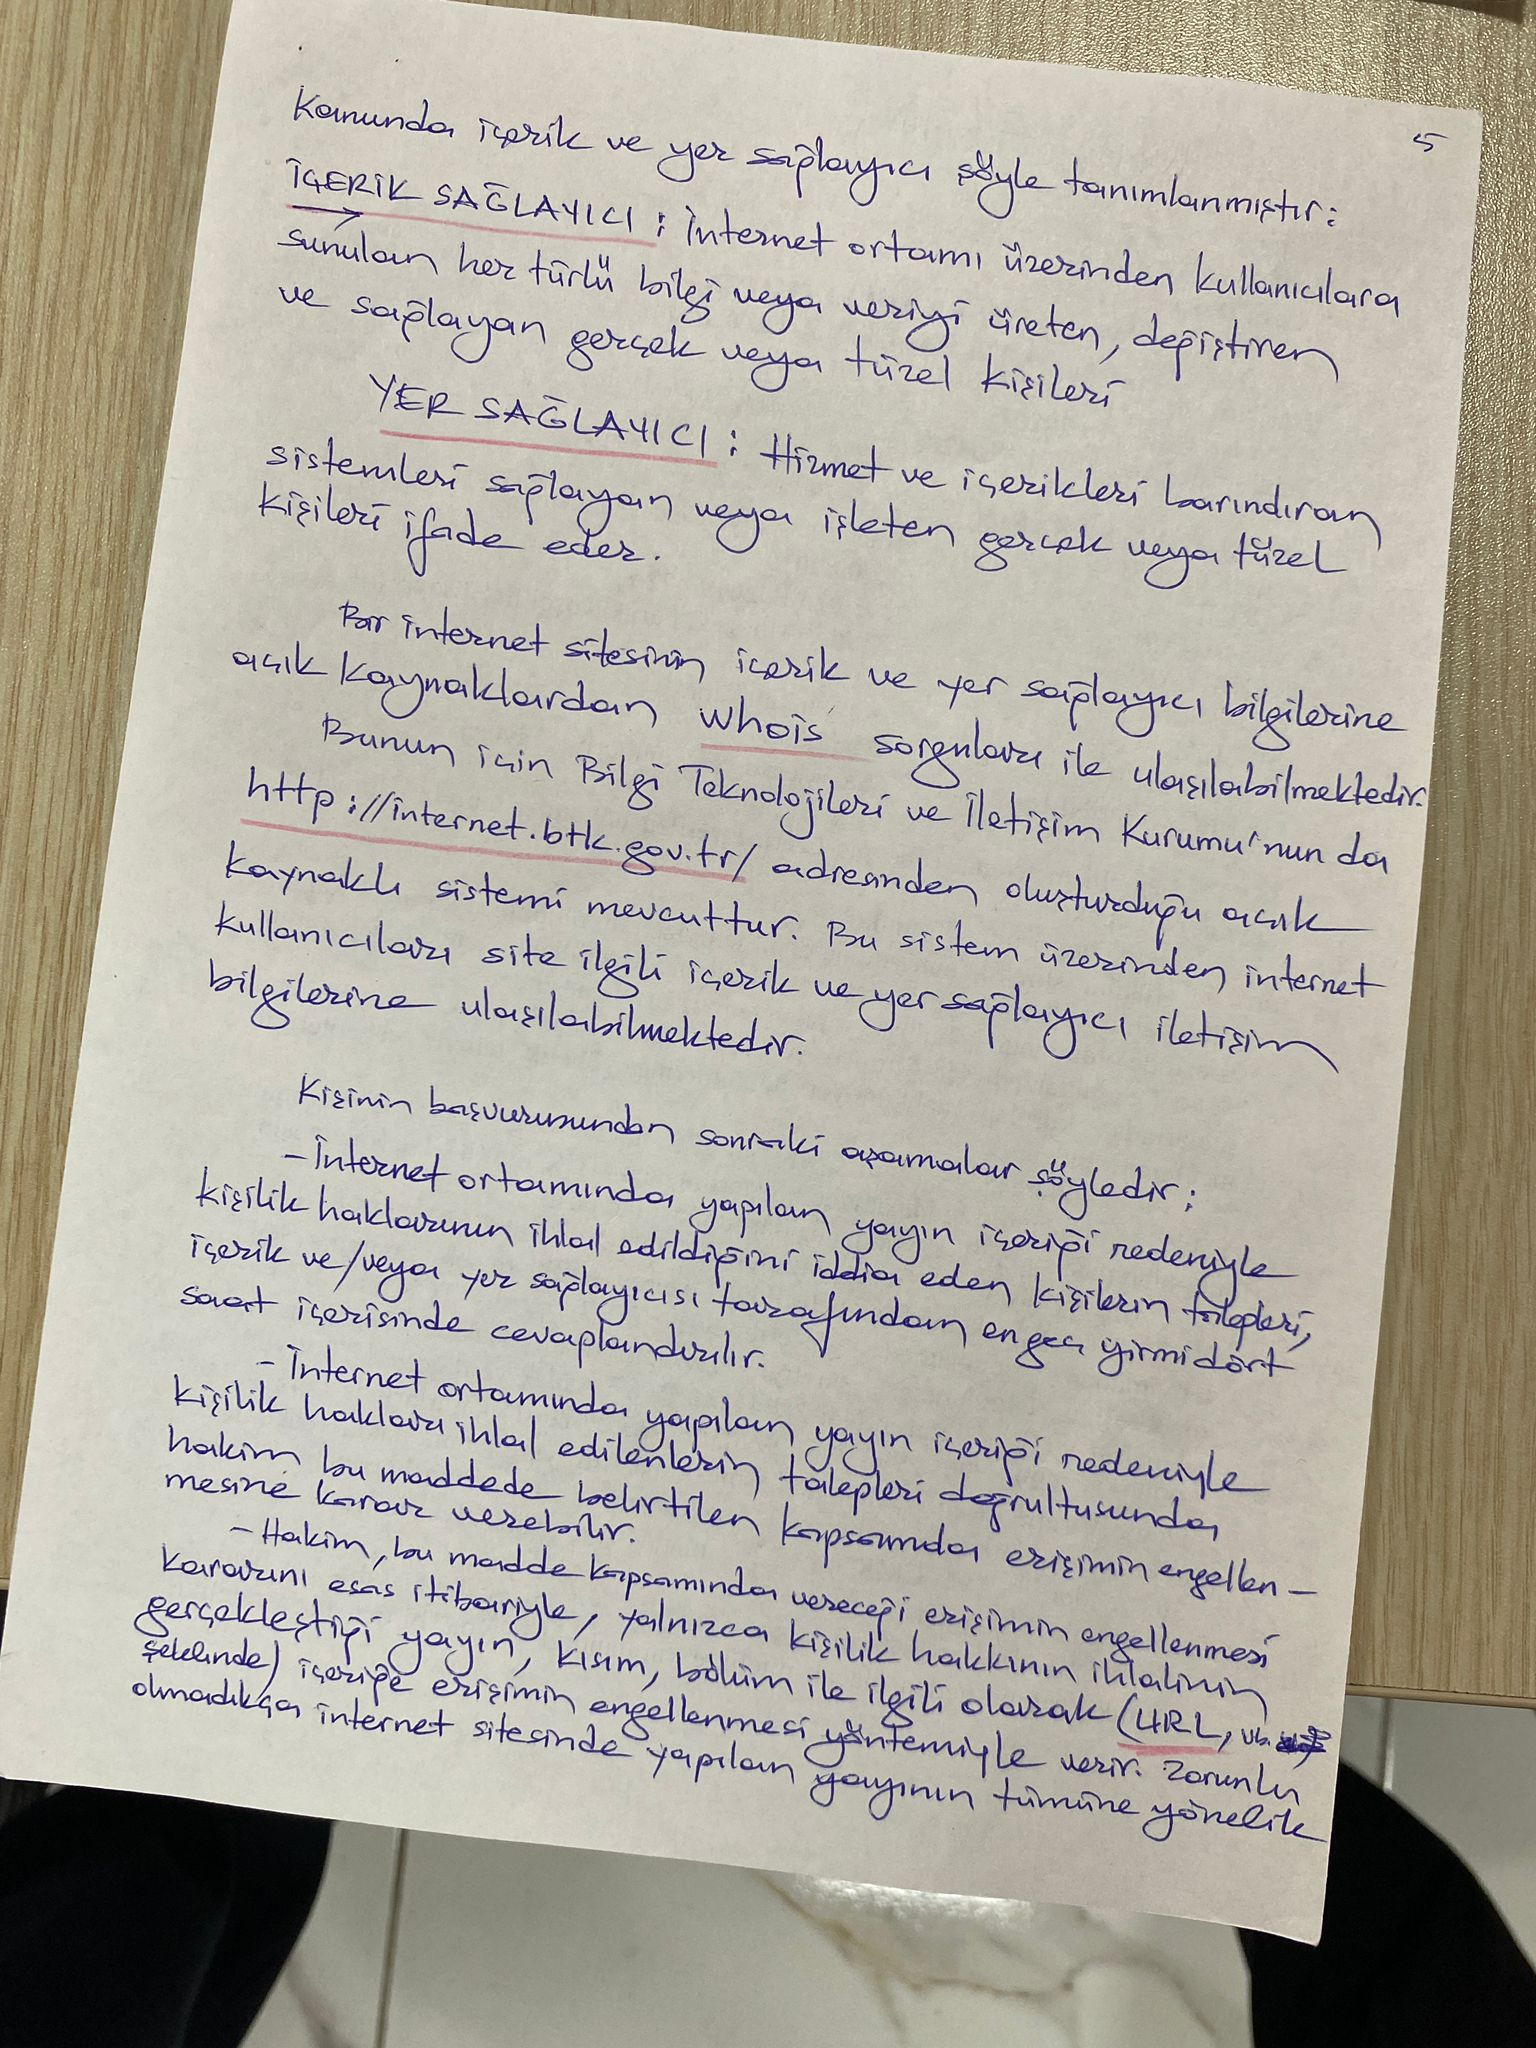 5
Kanunda içerik ve yer sağlayıcı şöyle tanımlanmıştır:
İÇERİK SAĞLAYICI : İnternet ortamı üzerinden kullanıcılara
sunulan her türlü bilgi veya veriyi üreten, değiştiren
ve sağlayan gerçek veya tüzel kişileri
YER SAĞLAYICI : Hizmet ve içerikleri barındıran
sistemleri sağlayan veya işleten gerçek veya tüzel
kişileri ifade eder.
Bir internet sitesinin içerik ve yer sağlayıcı bilgilerine
açık kaynaklardan whois sorguları ile ulaşılabilmektedir.
Bunun için Bilgi Teknolojileri ve İletişim Kurumu'nun da
http://internet.btk.gov.tr/ adresinden oluşturduğu açık
kaynaklı sistemi mevcuttur. Bu sistem üzerinden internet
kullanıcıları site ilgili içerik ve yer sağlayıcı iletişim
bilgilerine ulaşılabilmektedir.
Kişinin başvurusundan sonraki aşamalar şöyledir:
- İnternet ortamında yapılan yayın içeriği nedeniyle
kişilik haklarının ihlal edildiğini iddia eden kişilerin talepleri,
içerik ve/veya yer sağlayıcısı tarafından en geç yirmidört
saat içerisinde cevaplandırılır.
- İnternet ortamında yapılan yayın içeriği nedeniyle
kişilik hakları ihlal edilenlerin talepleri doğrultusunda
hakim bu maddede belirtilen kapsamda erişimin engellen-
mesine karar verebilir.
- Hakim, bu madde kapsamında vereceği erişimin engellenmesi
kararını esas itibariyle, yalnızca kişilik hakkının ihlalinin
gerçekleştiği yayın, kısım, bölüm ile ilgili olarak (URL, vb.
şeklinde) içeriğe erişimin engellenmesi yöntemiyle verir. Zorunlu
olmadıkça internet sitesinde yapılan yayının tümüne yönelik